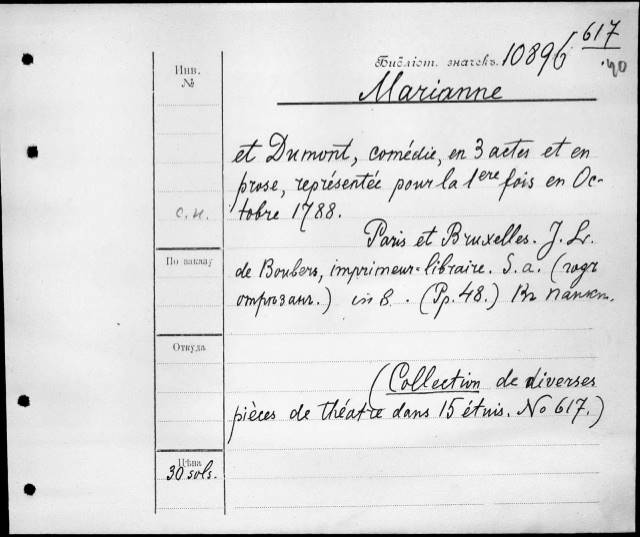 617
Библіот. значекъ. 10896
40
Инв.
№
Marianne
et Dumont, comédie, en 3 actes et en
prose, représentée pour la 1ere fois en Oc-
tobre 1788.
с. н.
Paris et Bruxelles. J. Lr.
По вкладу
de Boubers, imprimeur-libraire. S. a. (годъ
отрѣзанъ.) in 8. (Pp. 48.) Въ папкѣ.
Откуда
(Collection de diverses
pièces de théatre dans 15 étuis. No 617.)
Цѣна
30 sols.